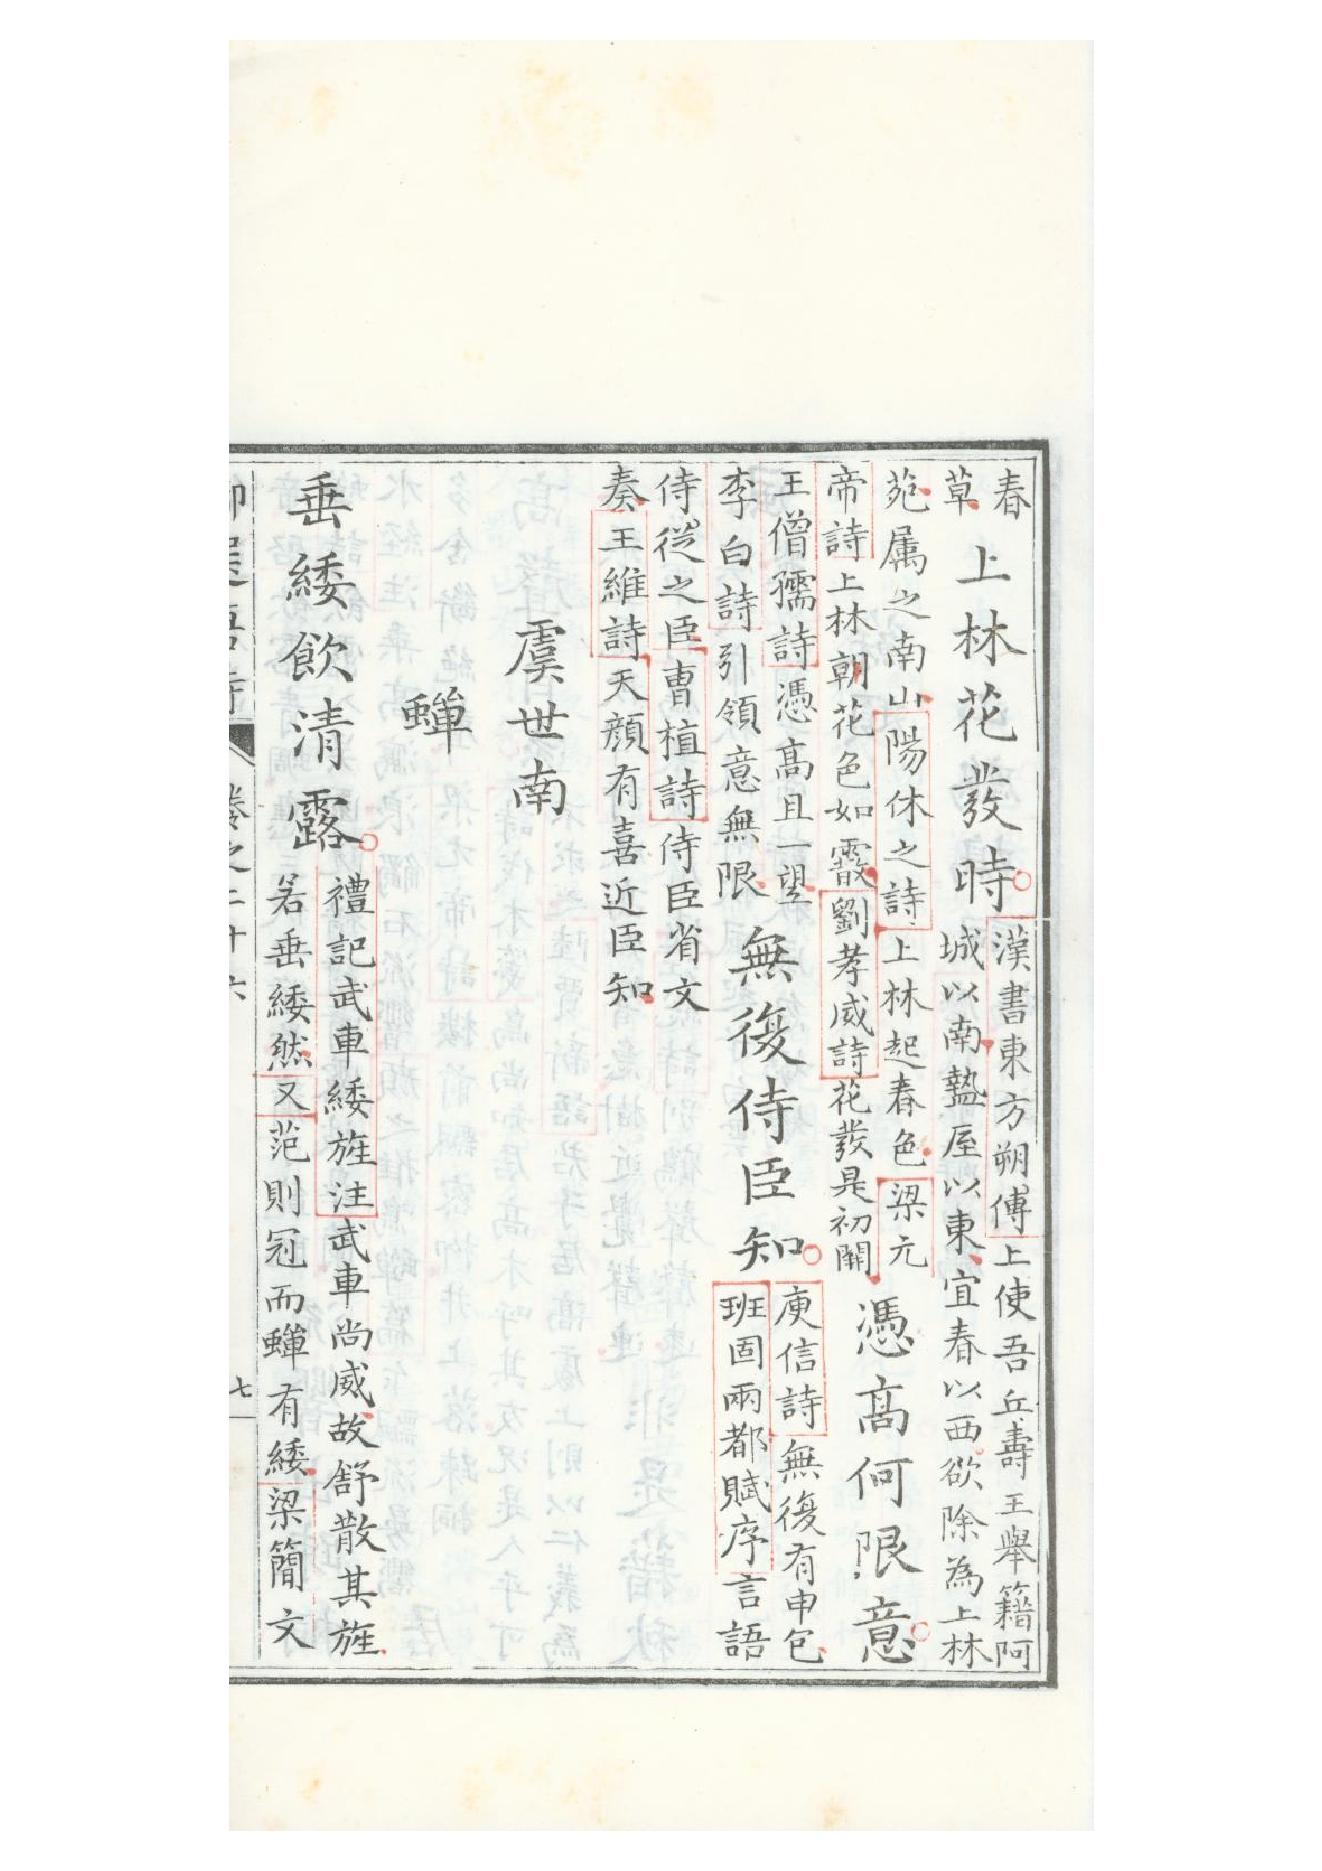 春
草
上林花發時
漢書東方朔傳上使吾丘壽王舉籍阿
城以南盩厔以東宜春以西欲除為上林
苑屬之南山陽休之詩上林起春色梁元
帝詩上林朝花色如霰劉孝威詩花發是初開
憑高何限意
王僧孺詩憑高且一望
李白詩引領意無限
無復侍臣知
庾信詩無復有申包
班固兩都賦序言語
侍從之臣曹植詩侍臣省文
奏王維詩天顏有喜近臣知
虞世南
蟬
垂緌飲清露
禮記武車緌旌注武車尚威故舒散其旌
若垂緌然又范則冠而蟬有緌梁簡文
卷之二十六
七